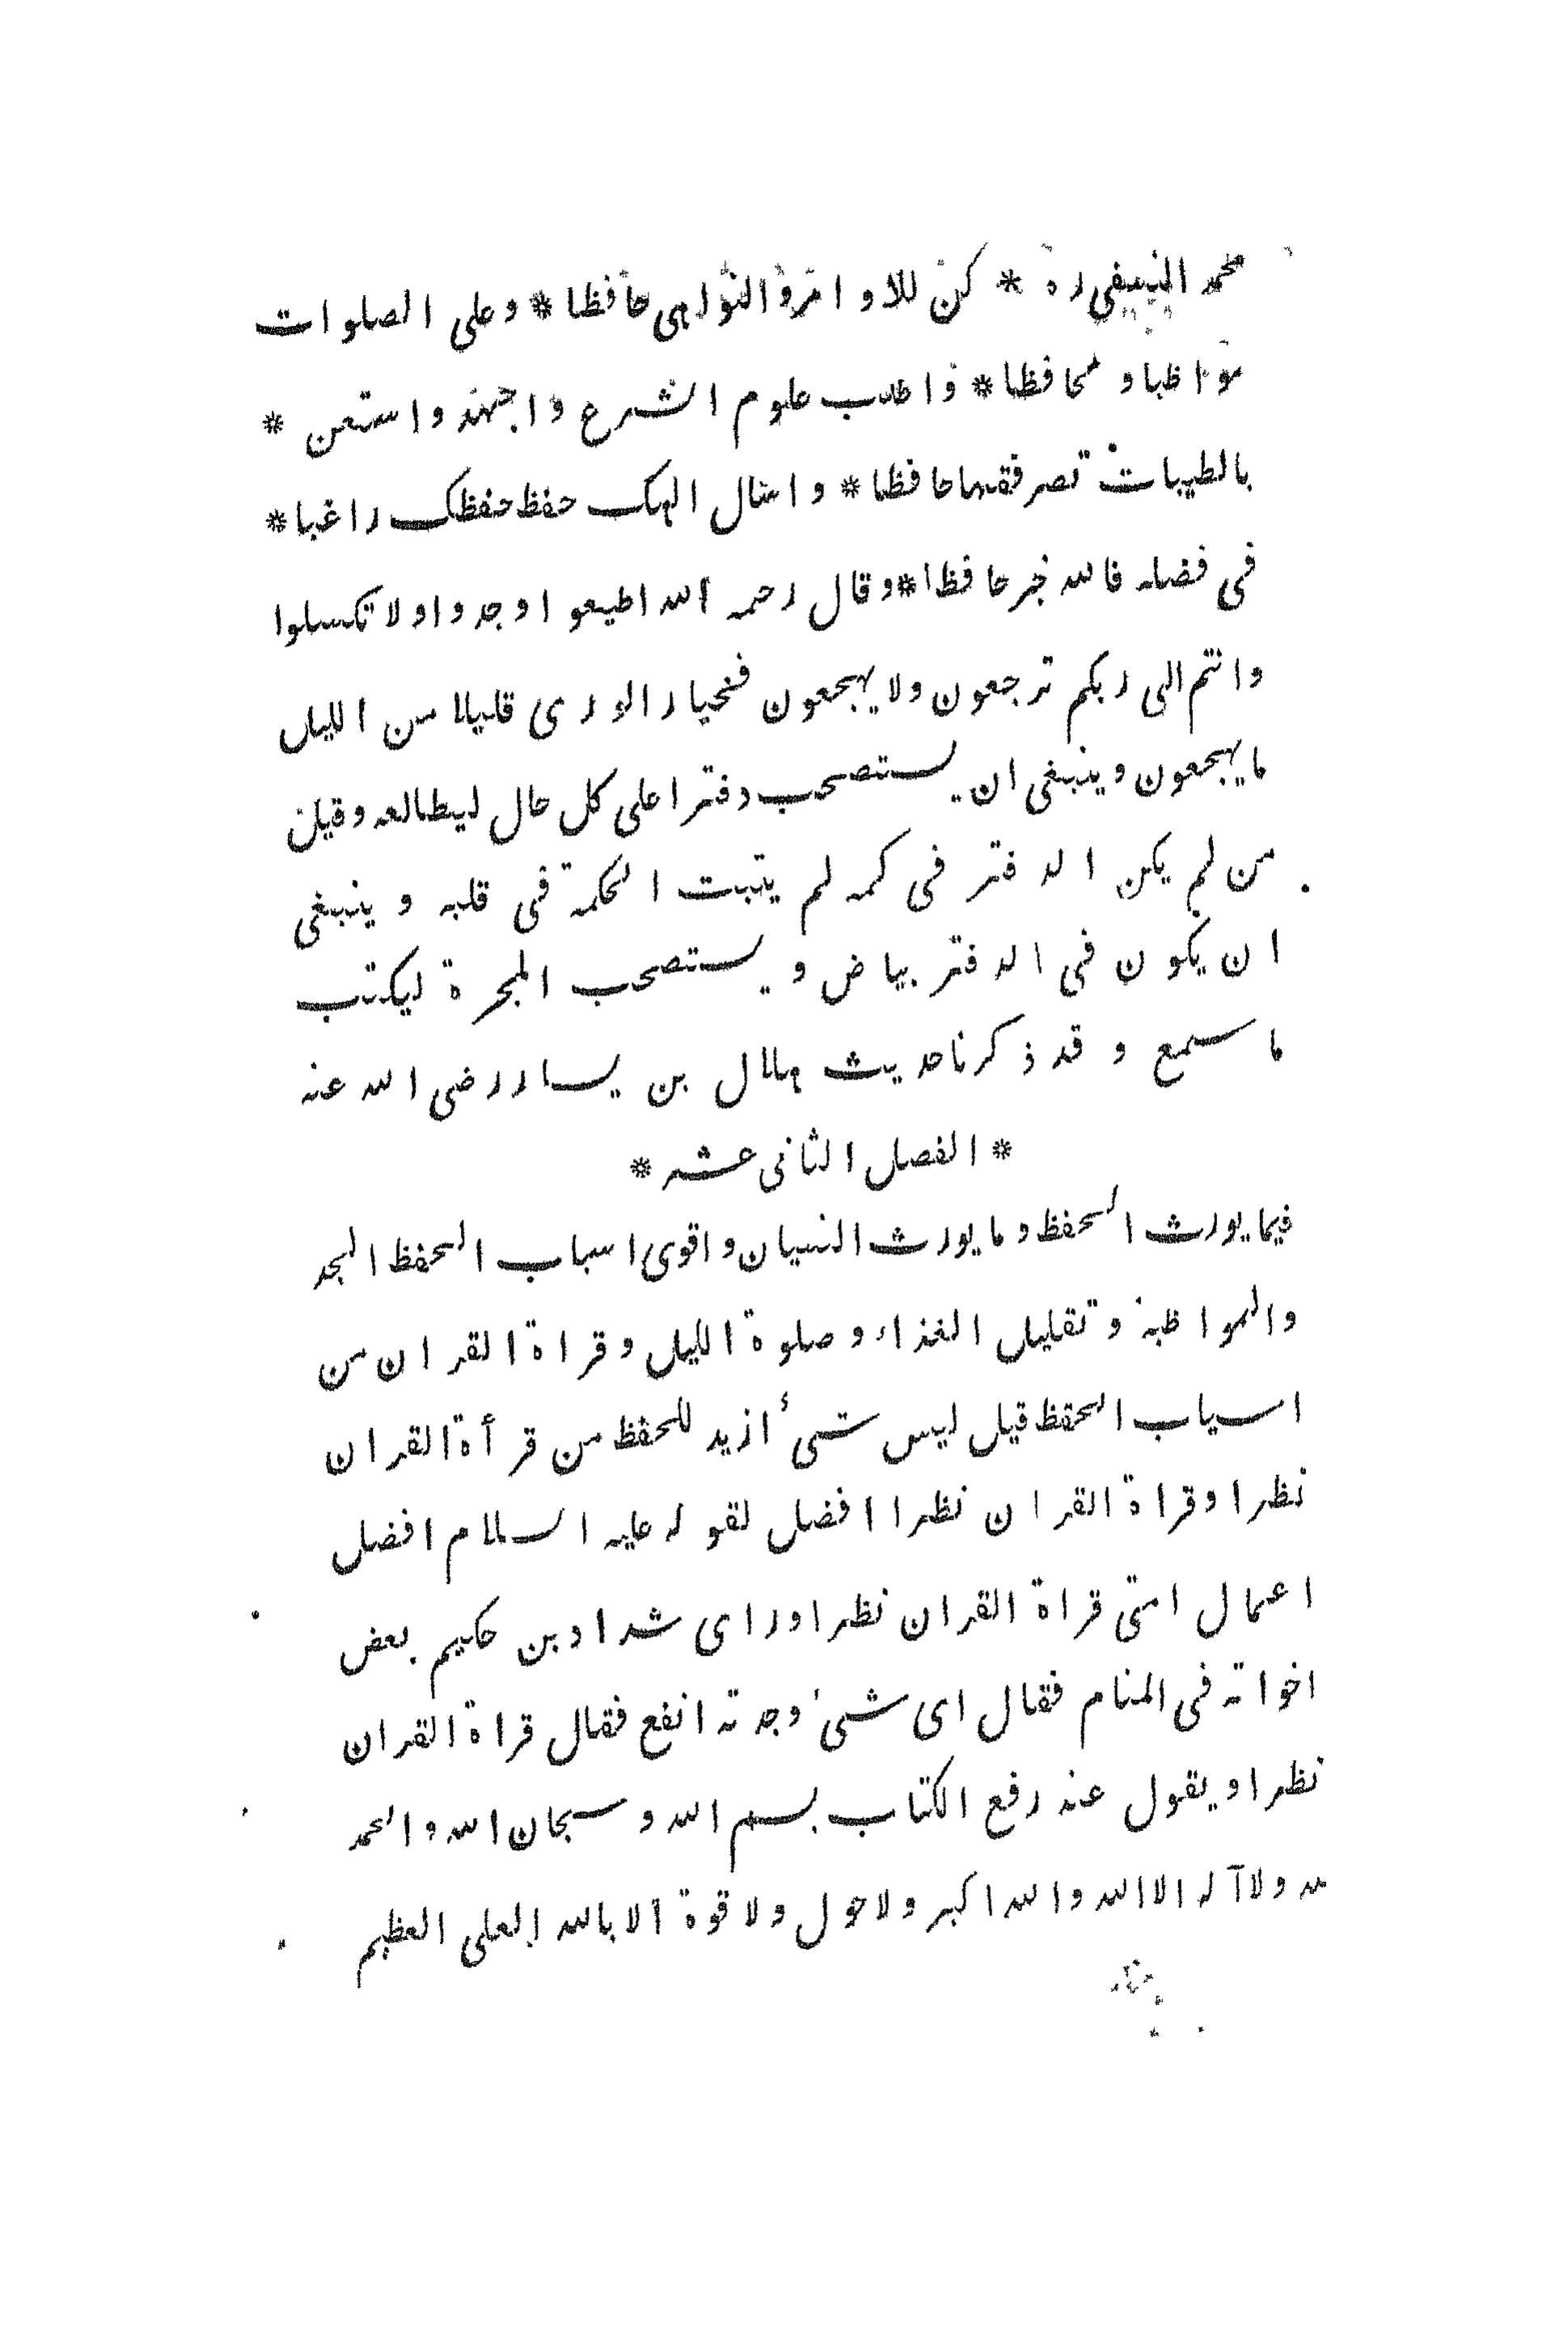 محمد النسفى ره * كن للاوامر والنواهى حافظا * وعلى الصلوات
مواظبا ومحافظا * واطلب علوم الشرع واجهد واستعن *
بالطيبات تصر فقيها حافظا * واسئال الهك حفظ حفظك راغبا *
فى فضله فالله خير حافظا * وقال رحمه الله اطيعوا وجدوا ولا تكسلوا
وانتم الى ربكم ترجعون ولا يهجعون فخيار الورى قليلا من الليل
ما يهجعون وينبغى ان يستصحب دفترا على كل حال ليطالعه وقيل
من لم يكن الدفتر فى كمه لم يثبت الحكمة فى قلبه وينبغى
ان يكون فى الدفتر بياض ويستصحب المحبرة ليكتب
ما سمع وقد ذكرنا حديث هلال بن يسار رضى الله عنه
* الفصل الثانى عشر *
فيما يورث الحفظ وما يورث النسيان واقوى اسباب الحفظ الجد
والمواظبة وتقليل الغذاء وصلوة الليل وقراة القران من
اسباب الحفظ قيل ليس شىء ازيد للحفظ من قرأة القران
نظرا وقراة القران نظرا افضل لقوله عليه السلام افضل
اعمال امتى قراة القران نظرا وراى شداد بن حكيم بعض
اخواته فى المنام فقال اى شىء وجدته انفع فقال قراة القران
نظرا ويقول عند رفع الكتاب بسم الله وسبحان الله والحمد
لله ولا آله الا الله والله اكبر ولا حول ولا قوة الا بالله العلى العظيم